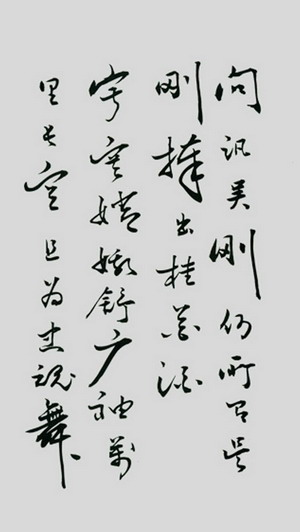 问讯吴刚何所有吴
刚捧出桂花酒
寂寞嫦娥舒广袖萬
里长空且为忠魂舞